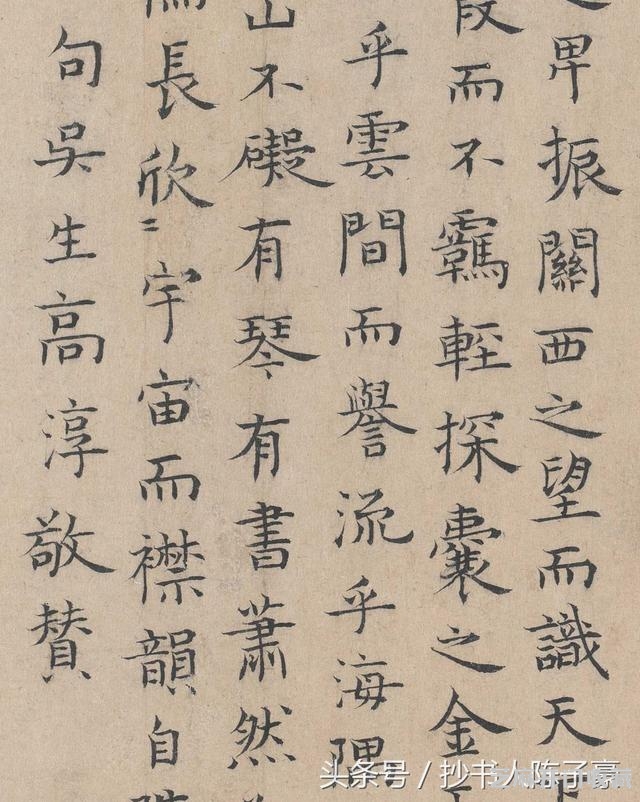 卑振關西之望而識天
段而不羈輕探囊之金
乎雲間而譽流乎海隅
山不礙有琴有書蕭然
長欣〻宇宙而襟韻自
句吳生高淳敬贊
头条号／抄书人陈子豪